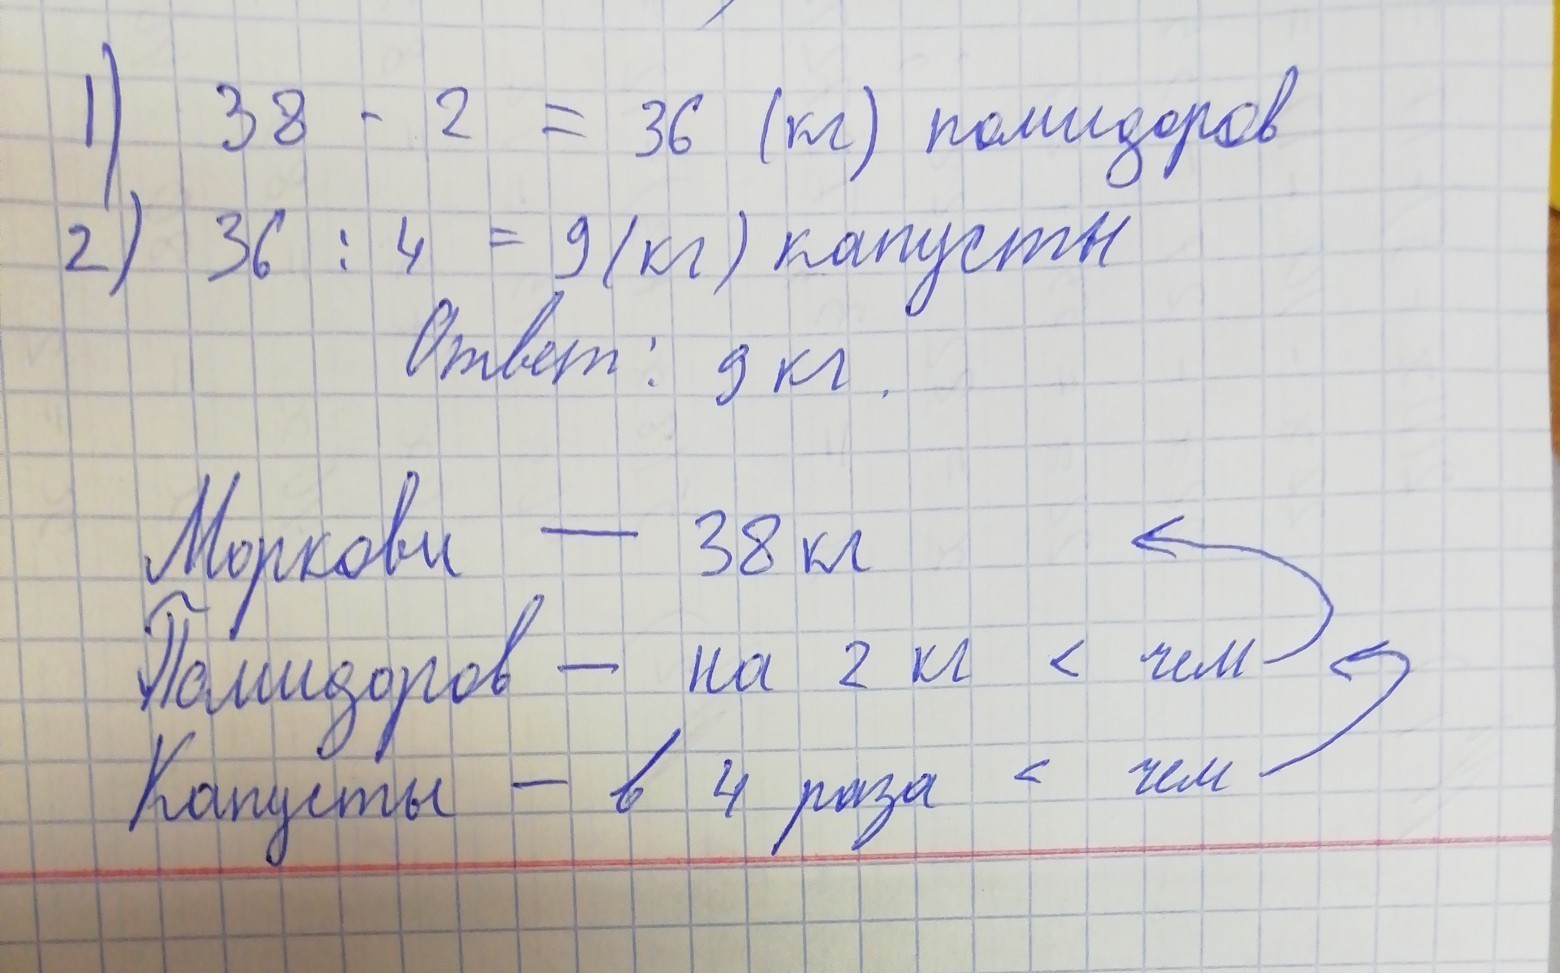 1) 38 - 2 = 36 (кг) помидоров
2) 36 : 4 = 9 (кг) капусты
Ответ: 9 кг.
Моркови — 38 кг
Помидоров — на 2 кг < чем
Капусты — в 4 раза < чем